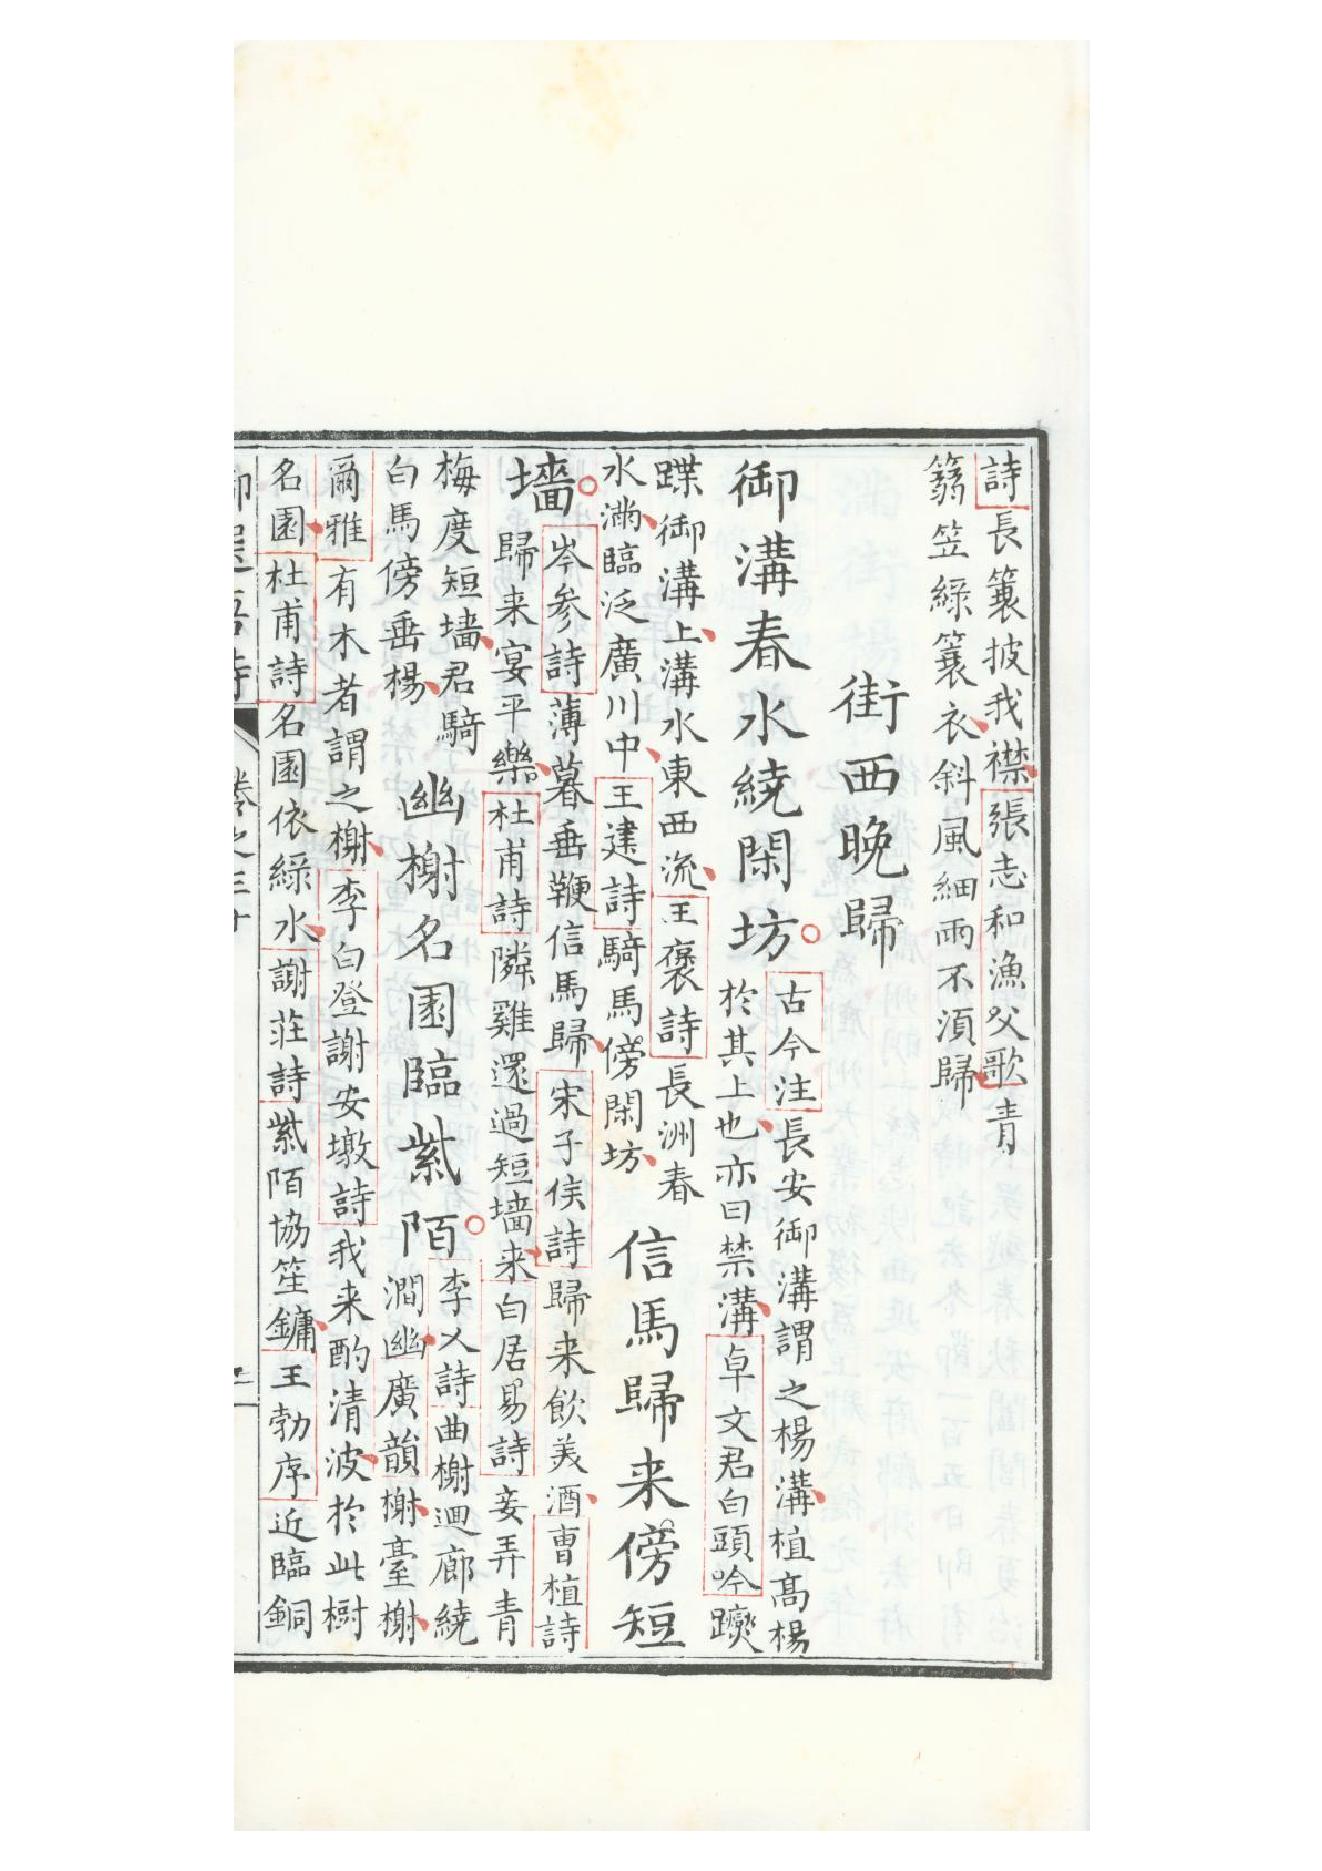 詩長簑披我襟張志和漁父歌青
篛笠綠簑衣斜風細雨不湏歸
街西晚歸
御溝春水繞閑坊
古今注長安御溝謂之楊溝植高楊
於其上也亦曰禁溝卓文君白頭吟躞
蹀御溝上溝水東西流王褒詩長洲春
水滿臨泛廣川中王建詩騎馬傍閑坊
信馬歸来傍短
墻
岑参詩薄暮垂鞭信馬歸宋子侯詩歸来飲美酒曹植詩
歸来宴平樂杜甫詩隣雞還過短墻来白居易詩妾弄青
梅度短墻君騎
白馬傍垂楊
幽榭名園臨紫陌
李乂詩曲榭迴廊繞
澗幽廣韻榭臺榭
爾雅有木者謂之榭李白登謝安墩詩我来酌清波於此樹
名園杜甫詩名園依綠水謝莊詩紫陌協笙鏞王勃序近臨銅
卷之三十